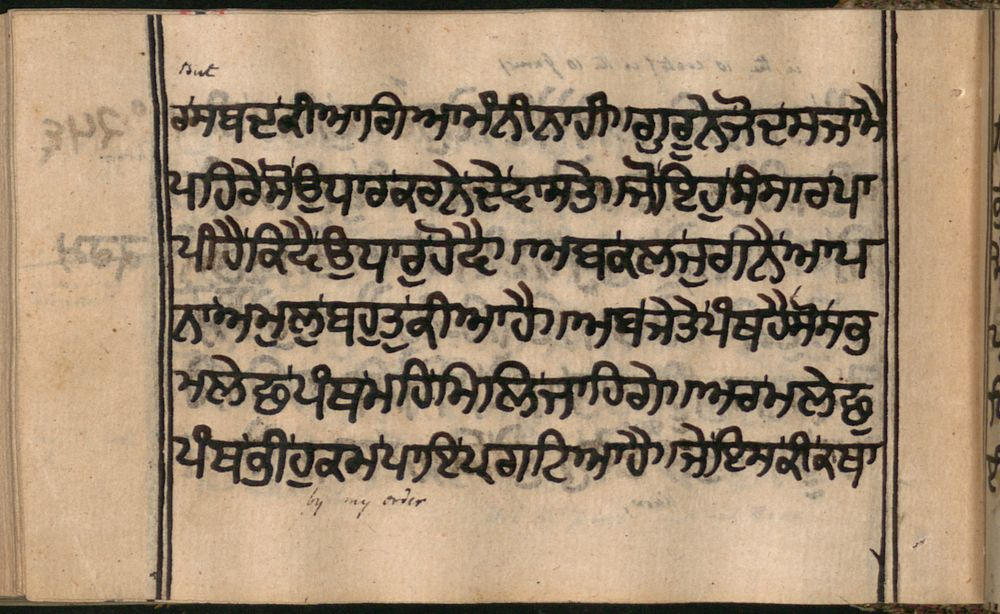 But
ਰਸਬਦਕੀਆਗਿਆਮੰਨੀਨਾਹੀ।ਗੁਰੂਨੇਜੋਦਸਜਾਮੇ
ਪਹਿਰੇਸੋਉਧਾਰਕਰਨੇਦੇਵਾਸਤੇ।ਜੋਇਹੁਸੰਸਾਰਪਾ
ਪੀਹੈਕਿਵੈਉਧਾਰੁਹੋਵੈ।ਅਬਕਲਜੁਗਨੈਆਪ
ਨਾਅਮੁਲੁਬਹੁਤੁਕੀਆਹੈ।ਅਬਜੇਤੇਪੰਥਹੈਸੋਸਭੁ
ਮਲੇਛਪੰਥਮਹਿਮਿਲਿਜਾਹਿਗੇ।ਅਰਮਲੇਛੁ
ਪੰਥਭੀਹੁਕਮਪਾਇਪ੍ਰਗਟਿਆਹੈ।ਜੇਇਸਕੀਕਥਾ
by my order